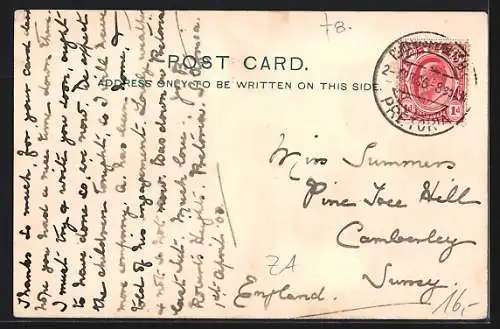 78.
POST CARD.
ADDRESS ONLY TO BE WRITTEN ON THIS SIDE.
PRETORIA
1d
Miss Summers
Pine Tree Hill
Camberley
Surrey
England.
ZA
16,-
Thanks so much for your card dear
hope you had a nice time down there.
I must try & write you soon, ought
to have done so ere now. Do expect
the children tonight, so I'll have
more company. A has been gone, &
told of his engagement. Lovely weather
so not so hot now. Was down in Pretoria
last Sat. Much love. Yrs
Roberts Heights. Pretoria
1st April 09